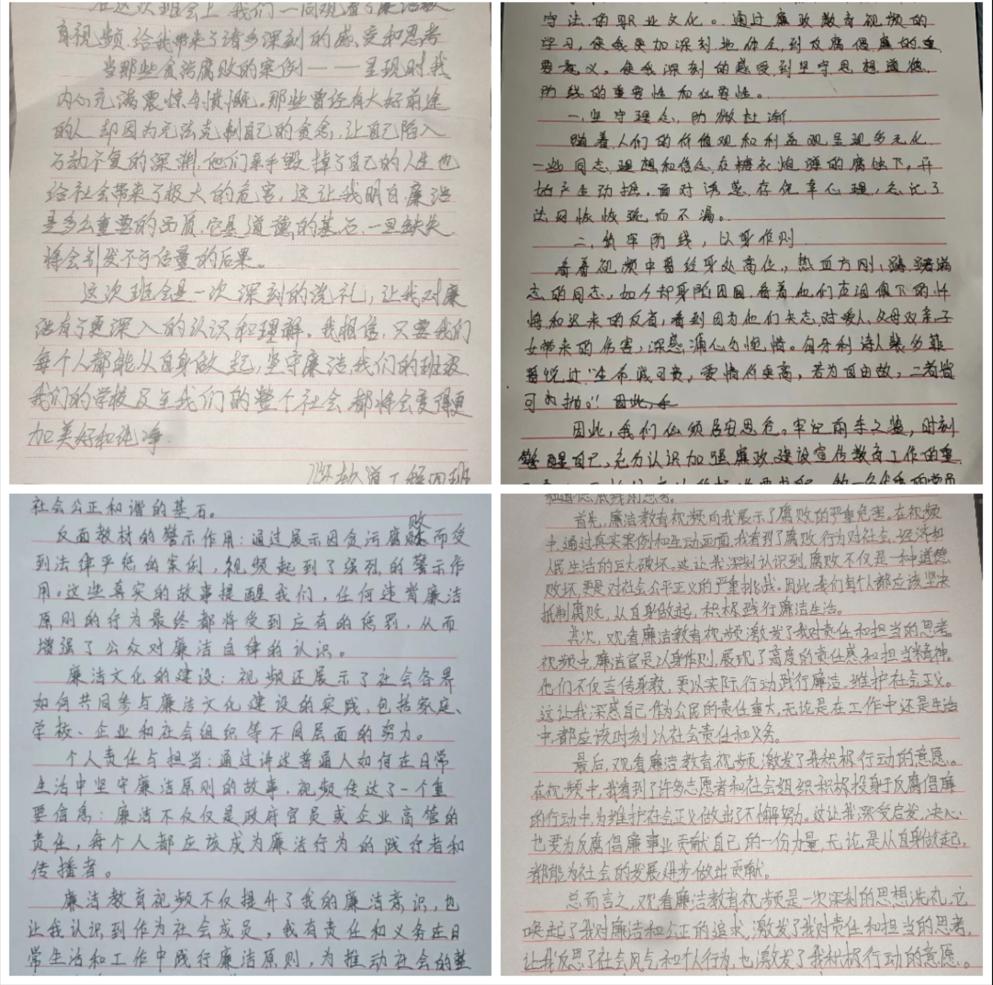 在这次班会上 我们一同观看了廉洁教
育视频,给我带来了诸多深刻的感受和思考
当那些贪污腐败的案例一一呈现时,我
内心充满震惊与愤慨。那些曾经有大好前途
的人,却因为无法克制自己的贪念,让自己陷入
万劫不复的深渊,他们亲手毁掉了自己的人生也
给社会带来了极大的危害,这让我明白廉洁
是多么重要的品质,它是道德的基石,一旦缺失
将会引发不可估量的后果。
这次班会是一次深刻的洗礼,让我对廉
洁有了更深入的认识和理解。我相信,只要我们
每个人都能从自身做起,坚守廉洁我们的班级
我们的学校乃至我们的整个社会,都将会变得更
加美好和纯净
轨道工程四班
守法的职业文化。通过廉政教育视频的
学习,使我更加深刻地体会到反腐倡廉的重
要意义,使我深刻的感受到坚守思想道德
防线的重要性和必要性。
一.坚守理念,防微杜渐
随着人们的价值观和利益观呈现多元化
一些同志,理想和信念在糖衣炮弹的腐蚀下,开
始产生动摇,面对诱惑,存侥幸心理,忘记了
法网恢恢疏而不漏。
二.筑牢防线,以身作则
看着视频中曾经身处高位,热血方刚,踌躇满
志的同志,如今却身陷囹圄,看着他们声泪俱下的忏
悔和迟来的反省,看到因为他们失志,对爱人、父母双亲子
女带来的伤害,深感痛心与惋惜。匈牙利诗人裴多菲
曾说过"生命诚可贵,爱情价更高,若为自由故,二者皆
可抛"!
因此,我们必须居安思危。牢记前车之鉴,时刻
警醒自己,充分认识加强廉政建设宣传教育工作的重
社会公正和谐的基石。
反面教材的警示作用:通过展示因贪污腐败而受
到法律严惩的案例,视频起到了强烈的警示作
用。这些真实的故事提醒我们,任何违背廉洁
原则的行为最终都将受到应有的惩罚,从而
增强了公众对廉洁自律的认识。
廉洁文化的建设:视频还展示了社会各界
如何共同参与廉洁文化建设的实践,包括家庭、
学校、企业和社会组织等不同层面的努力。
个人责任与担当:通过讲述普通人如何在日常
生活中坚守廉洁原则的故事,视频传达了一个重
要信息:廉洁不仅仅是政府官员或企业高管的
责任,每个人都应该成为廉洁行为的践行者和
传播者。
廉洁教育视频不仅提升了我的廉洁意识,也
让我认识到作为社会成员,我有责任和义务在日
常生活和工作中践行廉洁原则,为推动社会的整
首先,廉洁教育视频向我展示了腐败的严重危害。在视频
中,通过真实案例和互动画面,我看到了腐败行为对社会、经济和
人民生活的巨大破坏。这让我深刻认识到,腐败不仅是一种道德
败坏,更是对社会公平正义的严重挑战。因此,我们每个人都应该坚决
抵制腐败,从自身做起,积极践行廉洁生活。
其次,观看廉洁教育视频激发了我对责任和担当的思考。
视频中,廉洁官员以身作则,展现了高度的责任感和担当精神。
他们不仅言传身教,更以实际行动践行廉洁,维护社会正义。
这让我深感自己作为公民的责任重大,无论是在工作中还是生活
中,都应该时刻以社会责任和义务。
最后,观看廉洁教育视频激发了我积极行动的意愿。
在视频中,我看到了许多志愿者和社会组织积极投身于反腐倡廉
的行动中,为维护社会正义做出了不懈努力。这让我深受启发,决心
也要为反腐倡廉事业贡献自己的一份力量,无论是从自身做起,
都能为社会的发展进步做出贡献。
总而言之,观看廉洁教育视频是一次深刻的思想洗礼,它
唤起了我对廉洁和公正的追求,激发了我对责任和担当的思考,
让我反思了社会风气和个人行为,也激发了我积极行动的意愿。